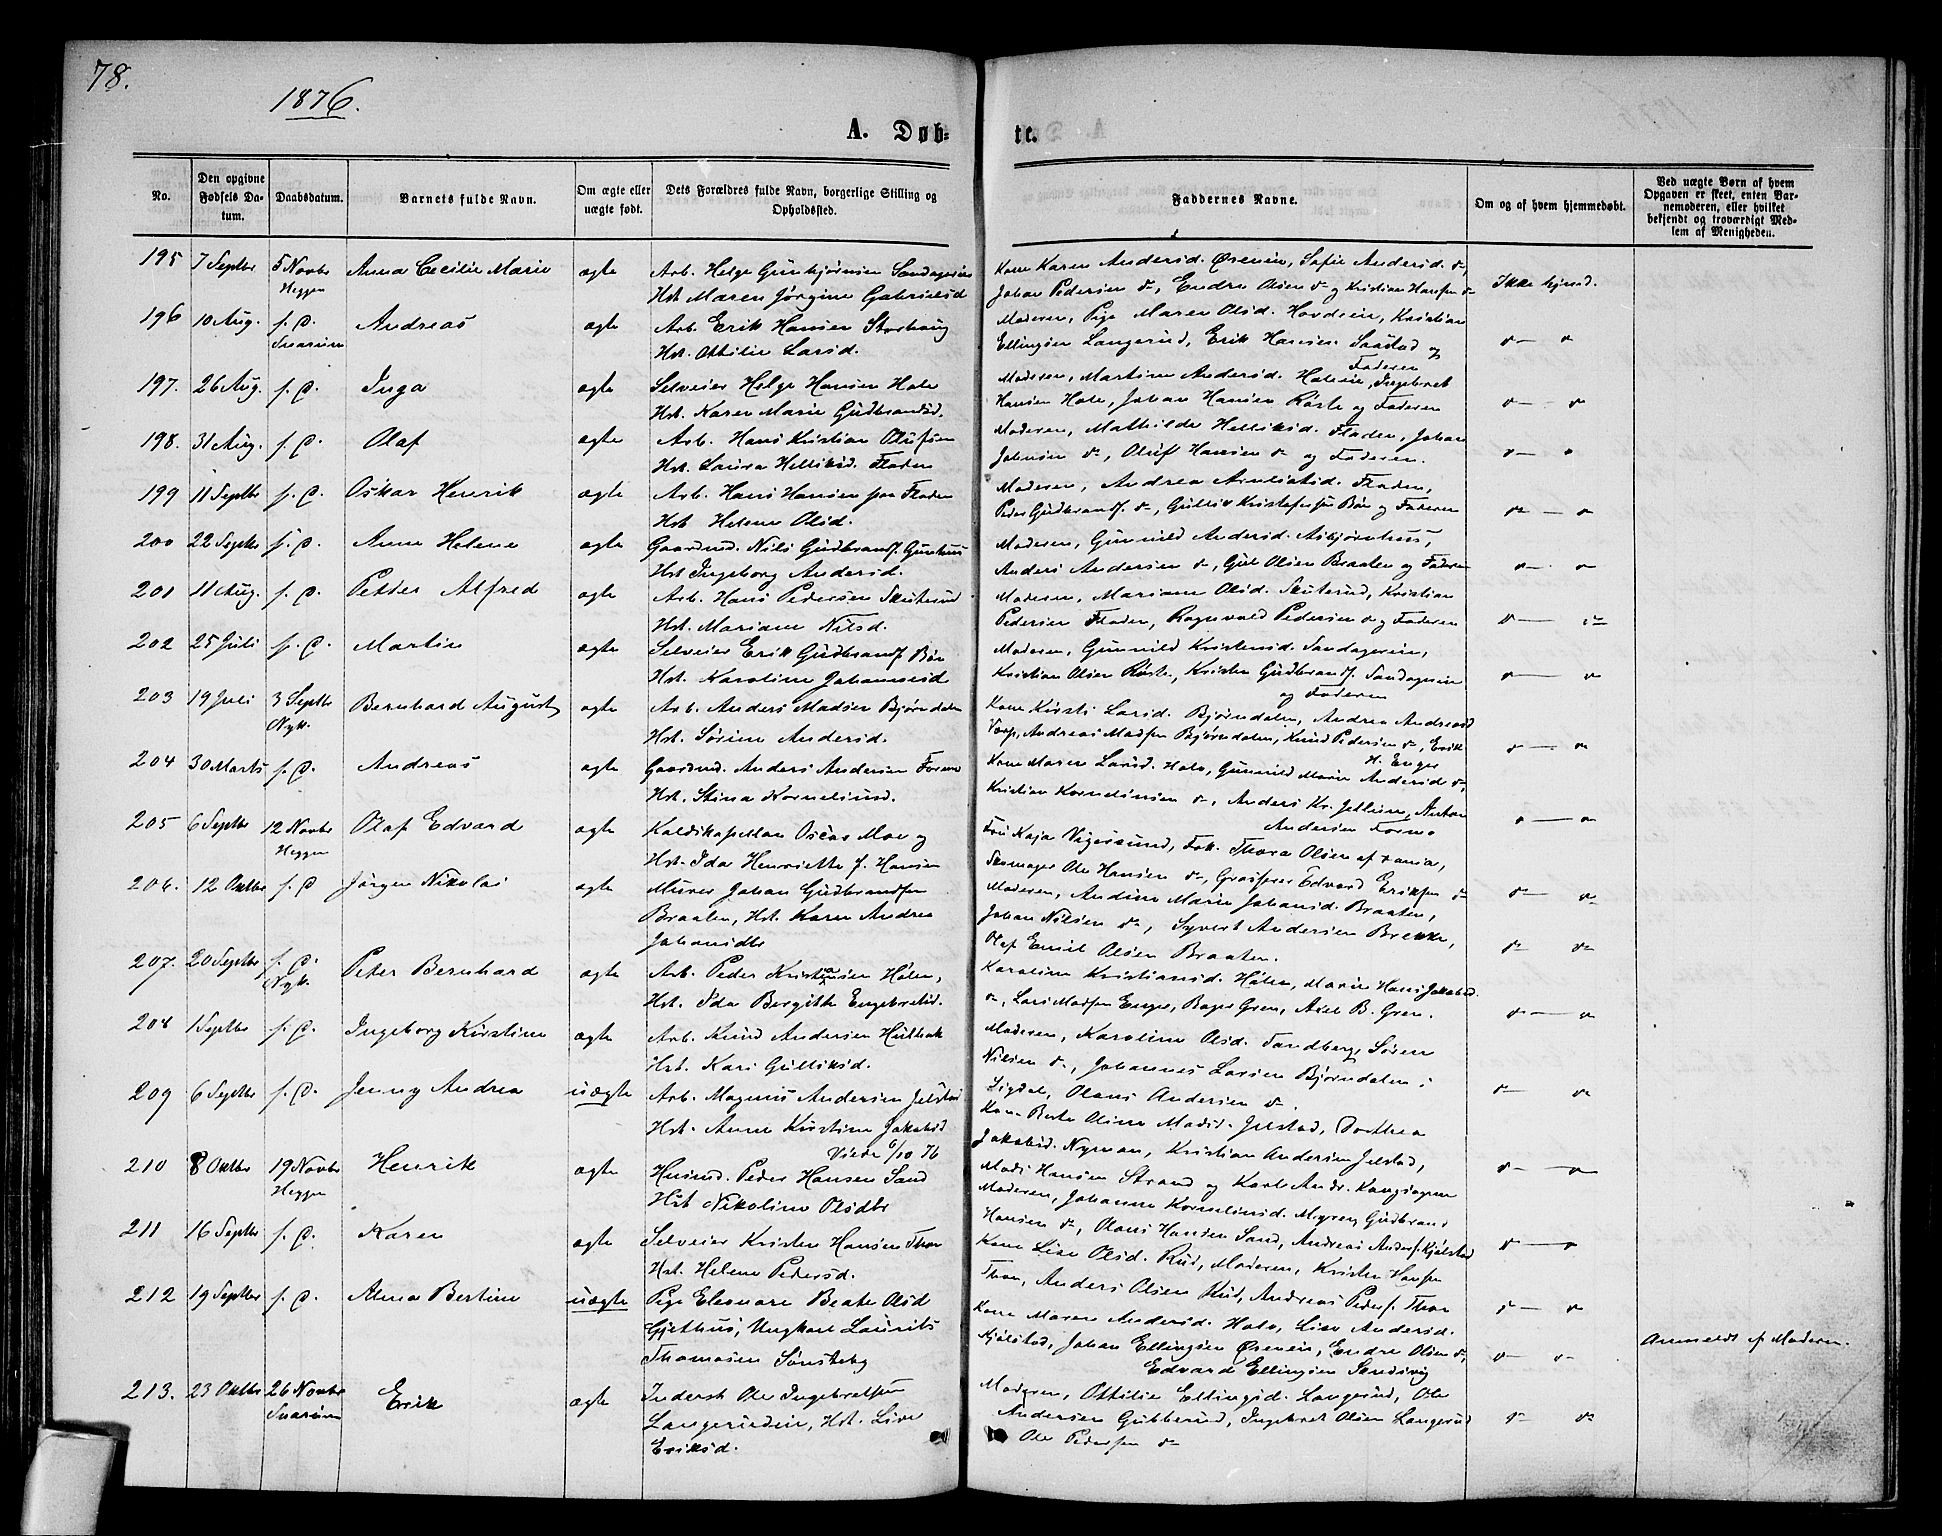 78.
1876.
A. Døb-
te.
No.
Den opgivne Fødsels Da-tum.
Daabsdatum.
Barnets fulde Navn.
Om ægte eller uægte født.
Dets Forældres fulde Navn, borgerlige Stilling og Opholdssted.
Faddernes Navne.
Om og af hvem hjemmedøbt.
Ved uægte Børn af hvem Opgaven er skeet, enten Bar-nemoderen, eller hvilket bekjendt og troværdigt Med-lem af Menigheden.
195 7 Septbr 5 Novbr Heggen Anna Cecilie Marie ægte
Arb. Helge Gunbjørnsen
Hst. Maren Jørgine Gabrielsd
Kone Karen Andersd. Ørevein, Sofie Andersd. do,
Johan Pedersen do, Endre Olsen do og Kristian Hansen do
Ikke hjmd.
196 10 Aug. s. D. Snarum Andreas ægte
Arb. Erik Hansen Storhaug
Hst. Ottilie Larsd.
Moderen, Pige Maren Olsd. Hovdsein, Kristian
Ellingsen Langerud, Erik Hansen Saastad og
Faderen
197. 26 Aug. s. D. Inga ægte
Selveier Helge Hansen Hole
Hst. Karen Marie Gudbrandsd.
Moderen, Martine Andersd. Holein, Ingebret
Hansen Hole, Johan Hansen Røste og Faderen
198. 31 Aug. s. D. Olaf ægte
Arb. Hans Kristian Olufsen
Hst. Laura Helliksd. Fladen
Moderen, Mathilde Helliksd. Fladen, Johan
Johnsen do, Oluf Hansen do og Faderen.
199 11 Septbr s. D. Oskar Henrik ægte
Arb. Hans Hansen paa Fladen
Hst Helene Olsd.
Moderen, Andrea Fladen,
Peder Gudbrands. do, Gullik Kristofersen Bøe og Faderen
200 22 Septbr s. D. Anne Helene ægte
Gaardmd. Nils Gudbrands. Gunhus
Hst Ingeborg Andersd.
Moderen, Gunnild Andersd. Asbjørnhus,
Anders Andersen do, Gul Olsen Braaten og Faderen
201 11 Aug. s. D. Petter Alfred ægte
Arb. Hans Pedersen Skuterud
Hst. Mariane Nilsd.
Moderen, Mariane Olsd. Skuterud, Kristian
Pedersen Fladen, Ragnvald Pedersen do og Faderen
202 25 Juli s. D. Martin ægte
Selveier Erik Gudbrands. Bøe
Hst. Karoline Johannesd
Moderen, Gunnild Kristensd. Sandagerein,
Kristian Olsen Røste, Kristen Gudbrands. Sandagerein
og Faderen
203 19 Juli 3 Septbr Nyk. Bernhard August ægte
Arb. Anders Madsen Bjørndalen
Hst. Sørine Andersd.
Kone Kirsti Larsd. Bjørndalen, Andrea Andreasd
Vorp, Andreas Madsen Bjørndalen, Knud Pedersen do, Erik
H. Enger
204 30 Marts s. D. Andreas ægte
Gaardmd. Anders Andersen Formo
Hst. Stina Korneliusd.
Kone Maren Larsd. Hole, Gunnild Marie Andersd do,
Kristian Korneliusen do, Anders Kr. Jellum, Anton
Andersen Formo
205 6 Septbr 12 Novbr Heggen Olaf Edvard ægte
Kaldskapellan Oscar Moe og
Hst. Ida Henriette f. Hansen
Fru Kaja Vigersund, Frk. Thora Olsen af Drania,
Skomager Ole Hansen do, Grosserer Edvard Eriksen do
206. 12 Oktbr s. D Jørgen Nikolai ægte
Murer Johan Gudbrandsen
Braaten, Hst. Karen Andrea
Johansdtr
Moderen, Andine Marie Johansd. Braaten,
Johan Nilsen do, Syvert Andersen Brekke,
Olaf Emil Olsen Braaten.
207. 20 Septbr s. D. Nyk. Peter Bernhard ægte
Arb. Peder Kristiansen Holen,
Hst. Ida Bergitte Engebretsd.
Karoline Kristiansd. Holen, Marie Hans Jakobsd.
do, Lars Madsen Enger, Bager Gren, Axel B. Gren.
208 1 Septbr s. D. Ingeborg Kirstine ægte
Arb. Knud Andersen Hulbak
Hst. Kari Gulliksd.
Moderen, Karoline Olsd. Sandberg, Søren
Nilsen do, Johannes Larsen Bjørndalen i
Sigdal, Olaus Andersen do.
209 6 Septbr s. D. Jenny Andrea uægte
Arb. Magnus Andersen Jelstad
Hst. Anne Kirstine Jakobsd
Viede 6/10 76
Kone Berte Oline Madsd. Jelstad, Dorthea
Jakobsd. Nyman, Kristian Andersen Jelstad,
Mads Hansen Strand og Karl Andr. Kongsagene
210 8 Oktbr 19 Novbr Heggen Henrik ægte
Husmd. Peder Hansen Sand
Hst Nikoline Olsdtr
Moderen, Johanne Korneliusd. Myren, Gudbrand
Hansen do, Olaus Hansen Sand, Andreas Anders. Kjølstad
211 16 Septbr s. D. Karen ægte
Selveier Kristen Hansen Thon
Hst. Helene Pedersd.
Kone Lise Olsd. Rud, Moderen, Kristen Hansen
Thon, Anders Olsen Rud, Andreas Peders. Thon
212 19 Septbr s. D. Alma Bertine uægte
Pige Eleonore Beate Olsd
Gjethus, Ungkarl Laurits
Thomasen Sønsteby
Kone Maren Andersd. Hole, Lise Andersd.
Kjølstad, Johan Ellingsen Ørevein, Endre Olsen do,
Edvard Ellingsen Sandsvig
Anmeldt af Moderen.
213. 23 Oktbr 26 Novbr Snarum Erik ægte
Inderst Ole Ingebretsen
Langerudein, Hst. Live
Eriksd.
Moderen, Ottilie Ellingsd. Langerud, Ole
Andersen Gubberud, Ingebret Olsen Langerud
Ole Pedersen do